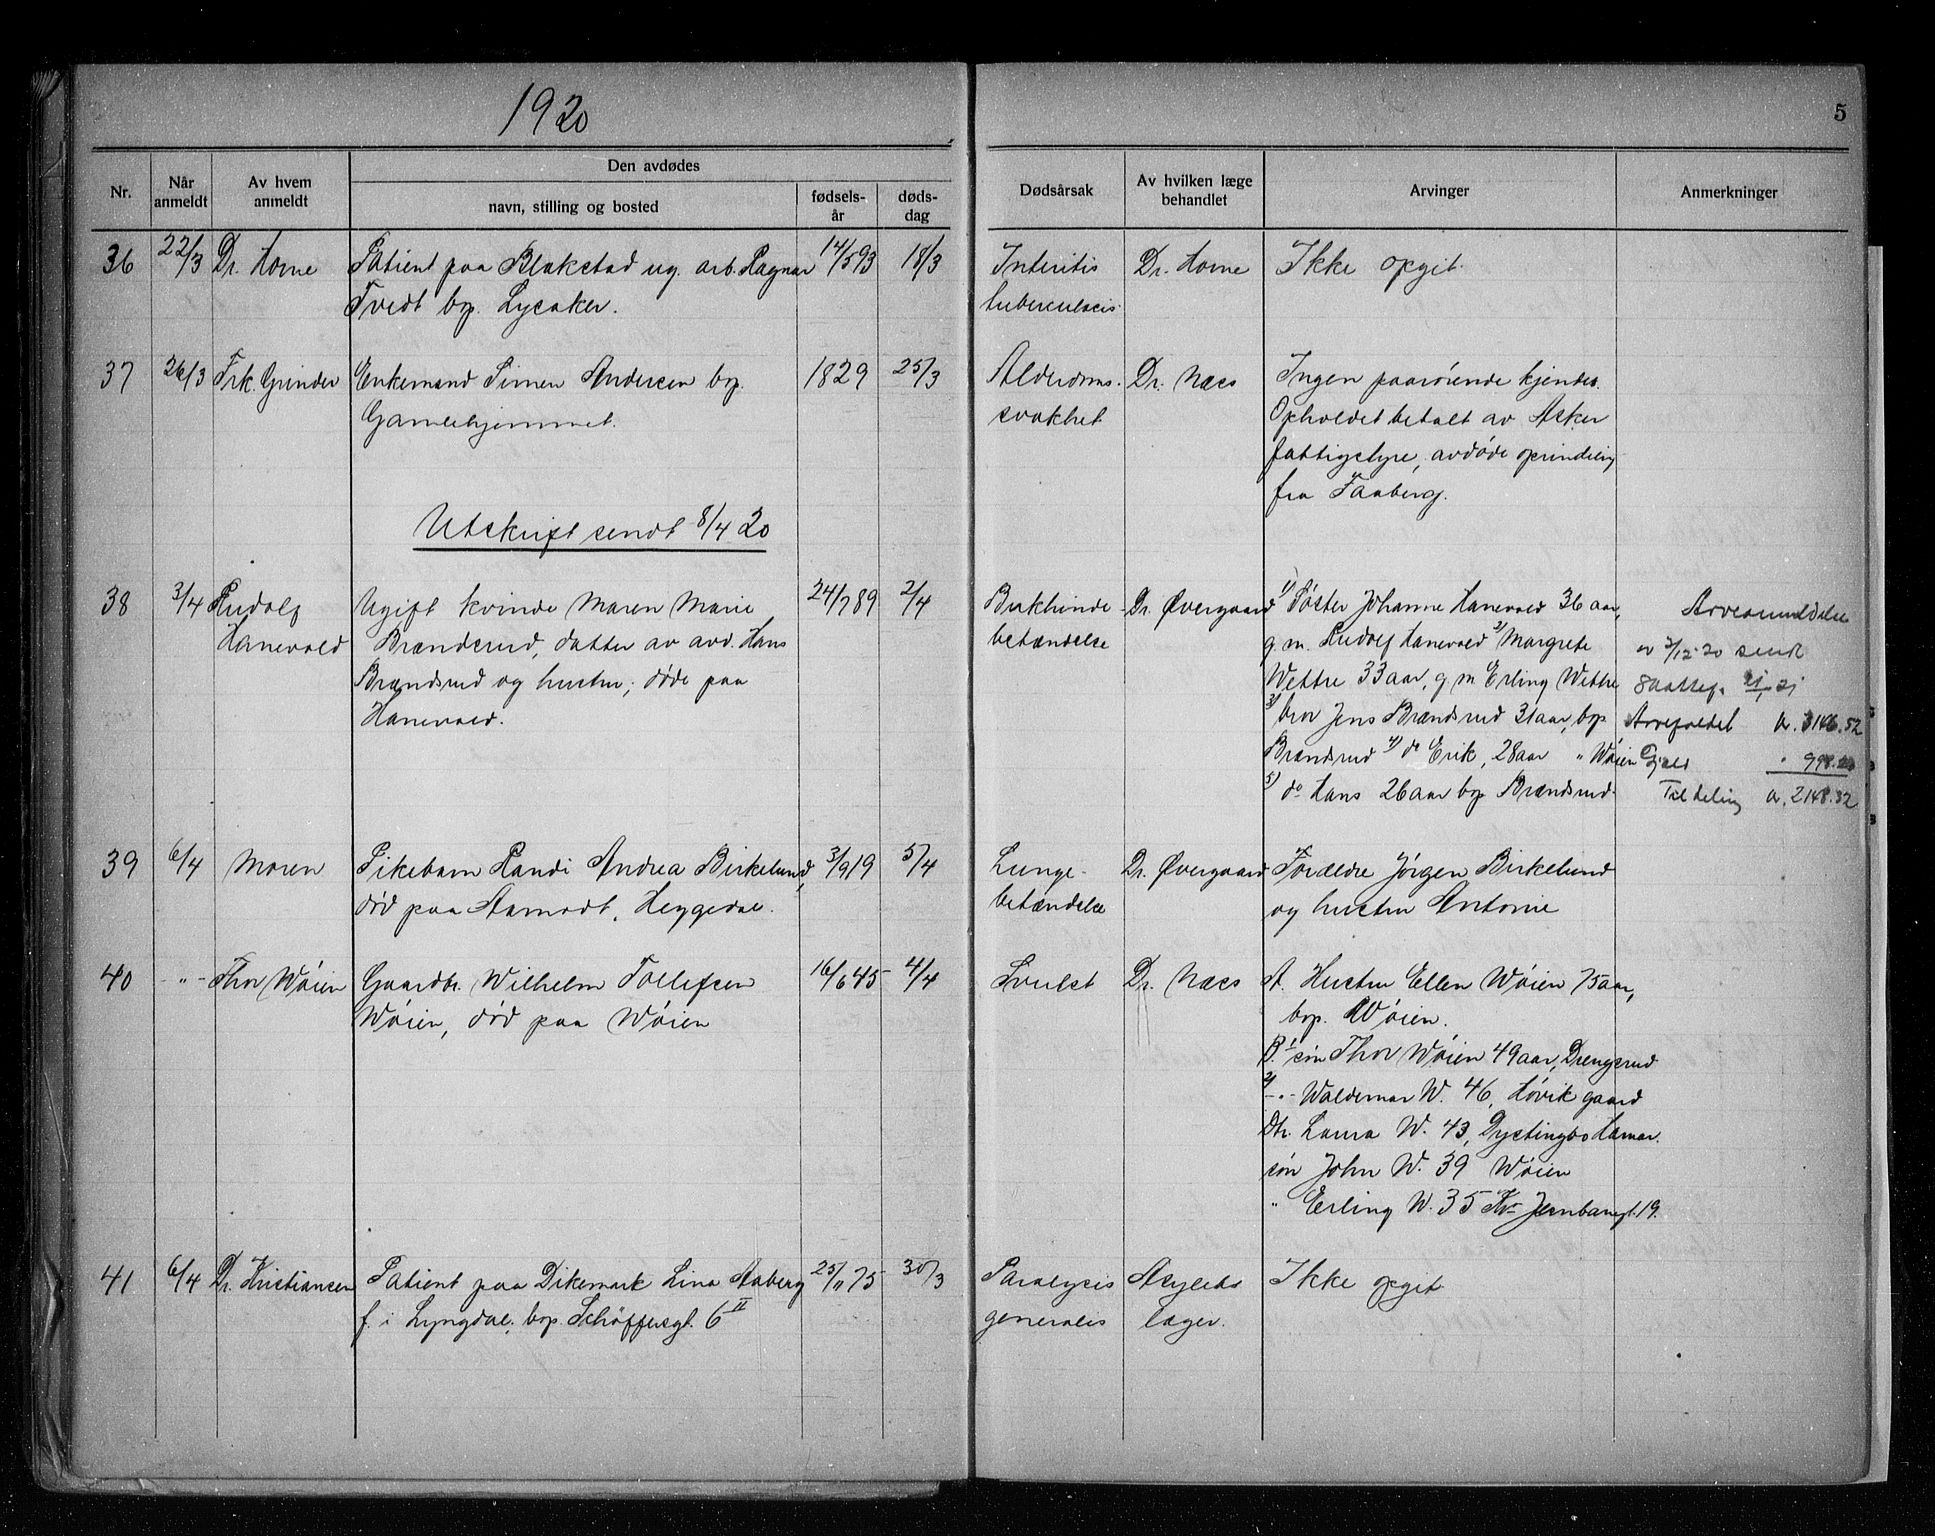 1920
5
Nr.
Når anmeldt
Av hvem anmeldt
Den avdødes
navn, stilling og bosted
fødsels-år
døds-dag
Dødsårsak
Av hvilken læge behandlet
Arvinger
Anmerkninger
36 22/3 Dr. Horne Patient paa Blakstad ug. arb. Ragnar 14/5 93 18/3 Interitis Dr. Horne Ikke opgit.
Tvedt bop. Lysaker. tuberculosis
37 26/3 Frk. Grinder Enkemand Simen Andersen bop. 1829 25/3 Alderdoms- Dr. Næss Ingen paarørende kjendes.
Gamlehjemmet. svakhet Opholdet betalt av Asker
fattigstyre, avdøde oprindelig
fra Faaberg.
Utskrift sendt 8/4 20
38 3/4 Rudolf Ugift kvinde Maren Marie 24/7 89 2/4 Bukhinde- Dr. Øvergaard 1) Søster Johanne Hanevold 36 aar, Arveanmeldelse
Hanevold Brændsrud, datter av avd. Hans betændelse g.m. Rudolf Hanevold 2) Margrete av 2/12-20 sendt
Brændsrud og hustru; døde paa Wettre 33 aar, g.m Erling Wettre
Hanevold. 3) bror Jens Brændsrud 31 aar, bop Arvefaldet kr. 3146.52
Brændsrud 4) do Erik, 28 aar " Wøien Gjæld " 998.20
5) do Hans 26 aar bop Brændsrud. Til deling kr. 2148.32
39 6/4 Moren Pikebarn Randi Andrea Birkelund, 3/9 19 5/4 Lunge- Dr. Øvergaard Forældre Jørgen Birkelund
død paa Aamodt, Heggedal. betændelse og hustru Antonie
40 -"- Thor Wøien Gaardbr. Wilhelm Tollefsen 16/6 45 4/4 Svulst Dr. Næss A. Hustru Ellen Wøien 75 aar,
Wøien, død paa Wøien bop. Wøien.
B. 1 søn Thor Wøien 49 aar, Drengsrud
2) -"- Waldemar W. 46, Høvik gaard
Dtr. Laura W. 43, Dystingbo Hamar.
søn John W. 39 Wøien
" Erling W. 35 Kr. Jernbanegt. 19.
41 6/4 Dr. Kristiansen Patient paa Dikemark Lina Aaberg 25/11 75 30/3 Paralysis Asylets Ikke opgit
f. i Lyngdal, bop. Schøffersgt. 6 II generalis læger.